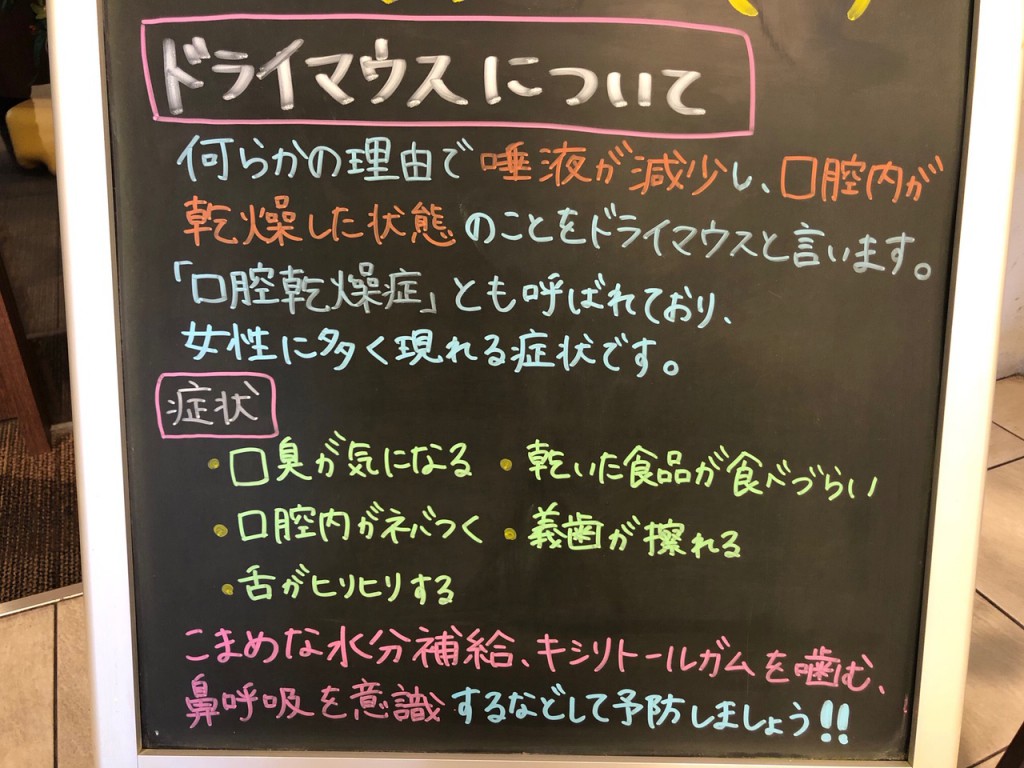 ドライマウスについて
何らかの理由で唾液が減少し、口腔内が
乾燥した状態のことをドライマウスと言います。
「口腔乾燥症」とも呼ばれており、
女性に多く現れる症状です。
症状
・口臭が気になる ・乾いた食品が食べづらい
・口腔内がネバつく ・義歯が擦れる
・舌がヒリヒリする
こまめな水分補給、キシリトールガムを噛む、
鼻呼吸を意識するなどして予防しましょう!!